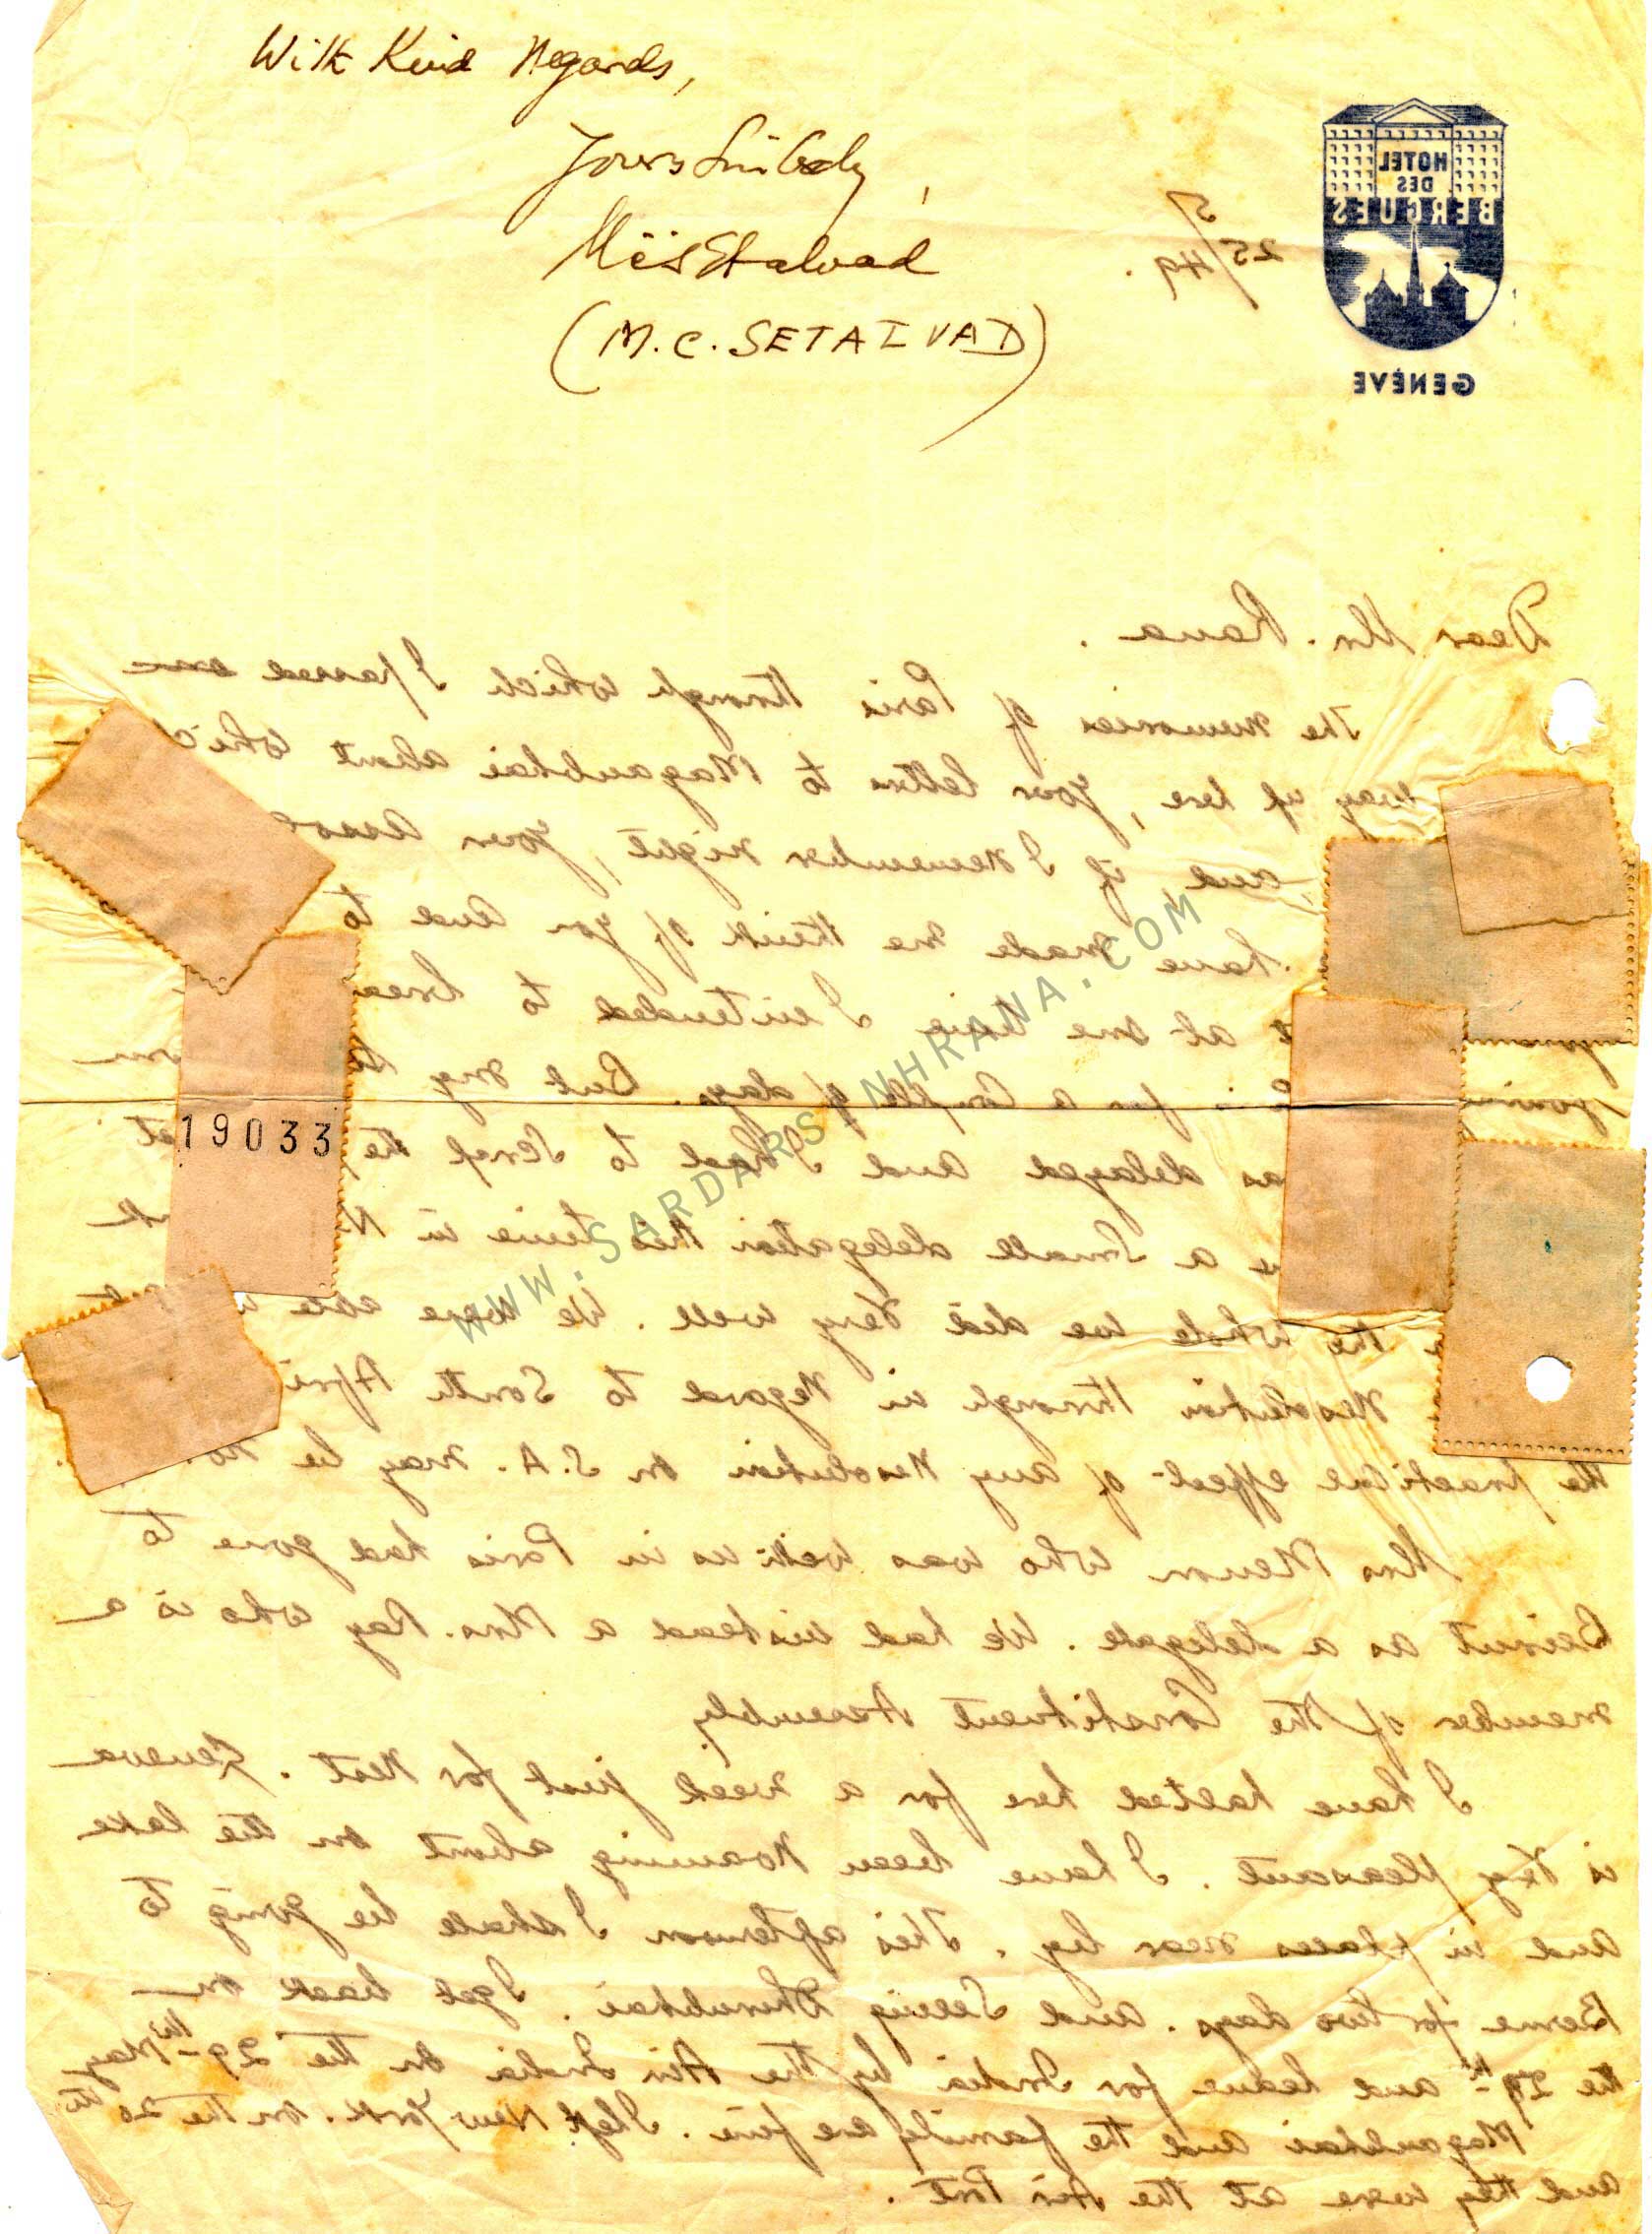 With Kind Regards,
Yours Sincerely,
MCSetalvad
(M.C. SETALVAD)
HOTEL
DES
BERGUES
GENÈVE
25/5/49.
Dear Mr. Rana.
The memories of Paris through which I passed on
way up here, your letters to Maganbhai about which
and, if I remember right, your
have made me think of you and to
at one time I intended to break
for a couple of days. But my
as delayed and I had to scrap the
a small delegation this time in
the whole we did very well. We were able
resolution through in regard to South
the practical effect of any resolution on S.A. may be
Mrs Menon who was with us in Paris had gone to
Beirut as a delegate. We had instead a Mrs. Ray who is a
member of the Constituent Assembly.
I have halted here for a week just for rest. Geneva
is very pleasant. I have been roaming about on the lake
and in places near by. This afternoon I shall be going to
Berne for two days. and seeing Dhirubhai. I get back on
the 27th and leave for India by the Air India on the 29th May
Maganbhai and the family are fine. I left New York. on the 20th
and they were at the Air Port.
19033
WWW.SARDARSINHRANA.COM